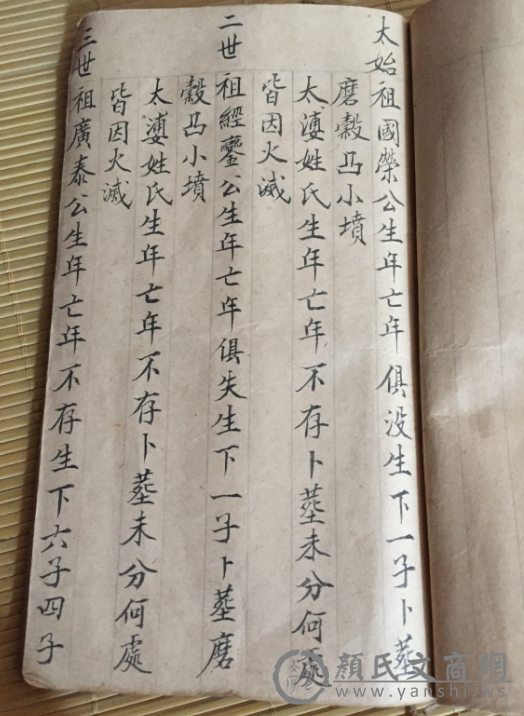 太始祖國榮公生年亡年俱没生下一子卜塟
磨穀凸小墳
太婆姓氏生年亡年不存卜塟未分何處
皆因火滅
二世祖經鑾公生年亡年俱失生下一子卜塟磨
穀凸小墳
太婆姓氏生年亡年不存卜塟未分何處
皆因火滅
三世祖廣泰公生年亡年不存生下六子四子
顏氏文商網
www.yanshi.ws